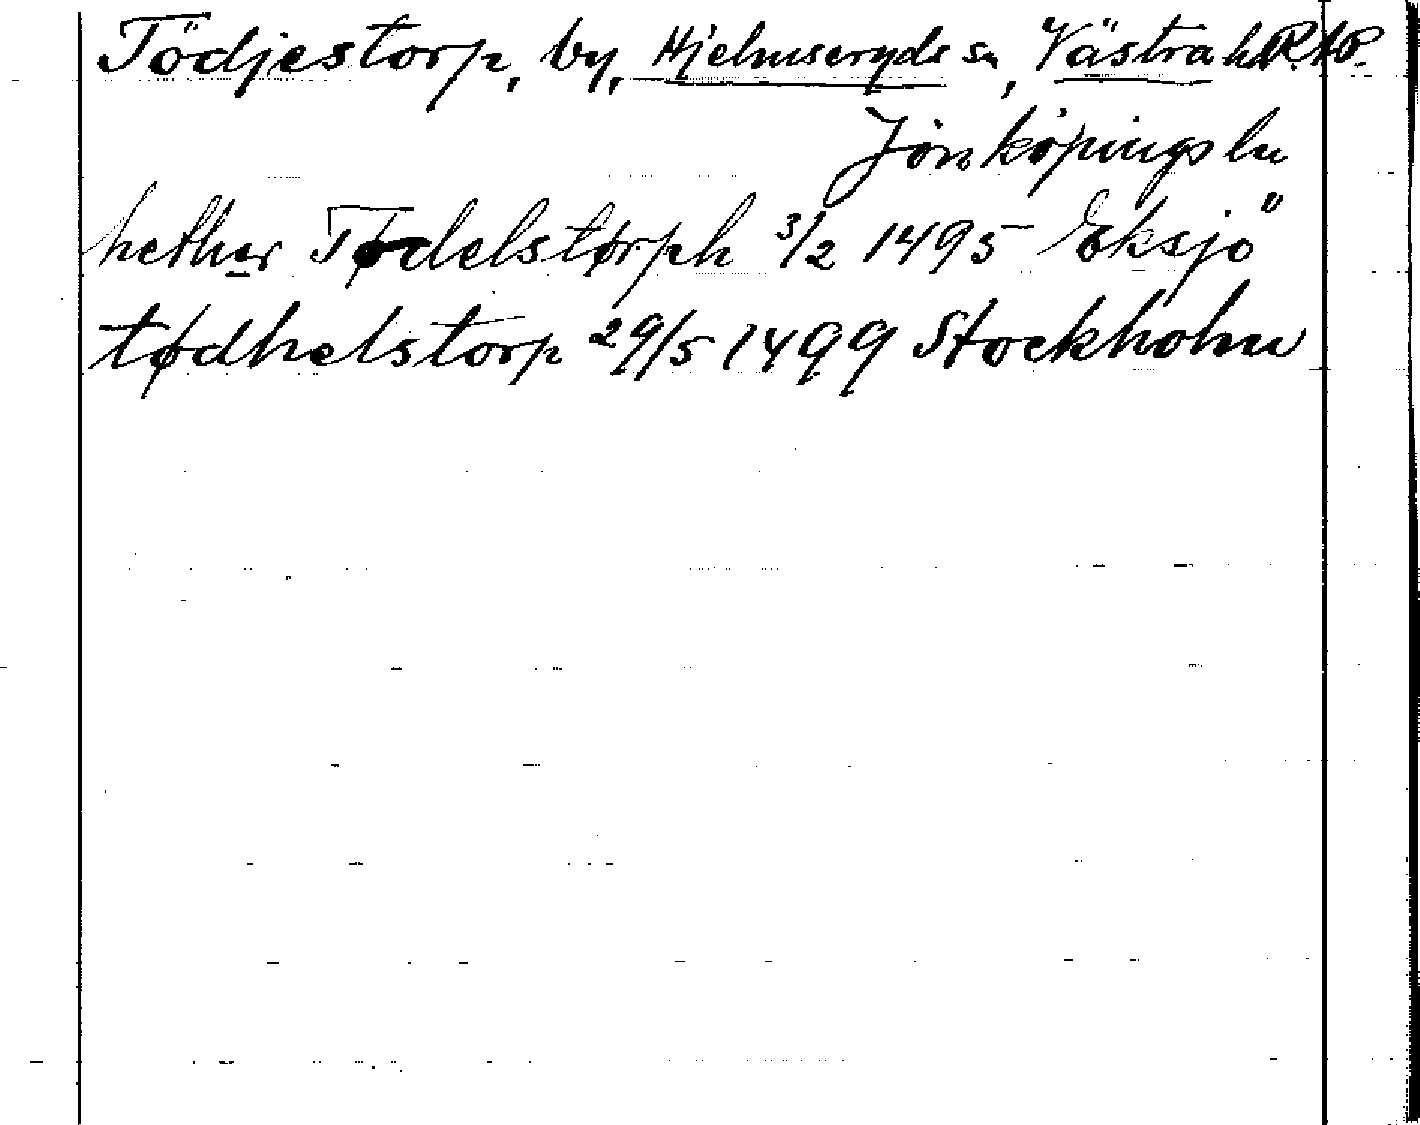 Tödjestorp, by, Hjelmseryds sn, Västra hd R.A.P.
Jönköpings ln
hether Tødelstørph 3/2 1495 Eksjö
tødhelstorp 29/5 1499 Stockholm